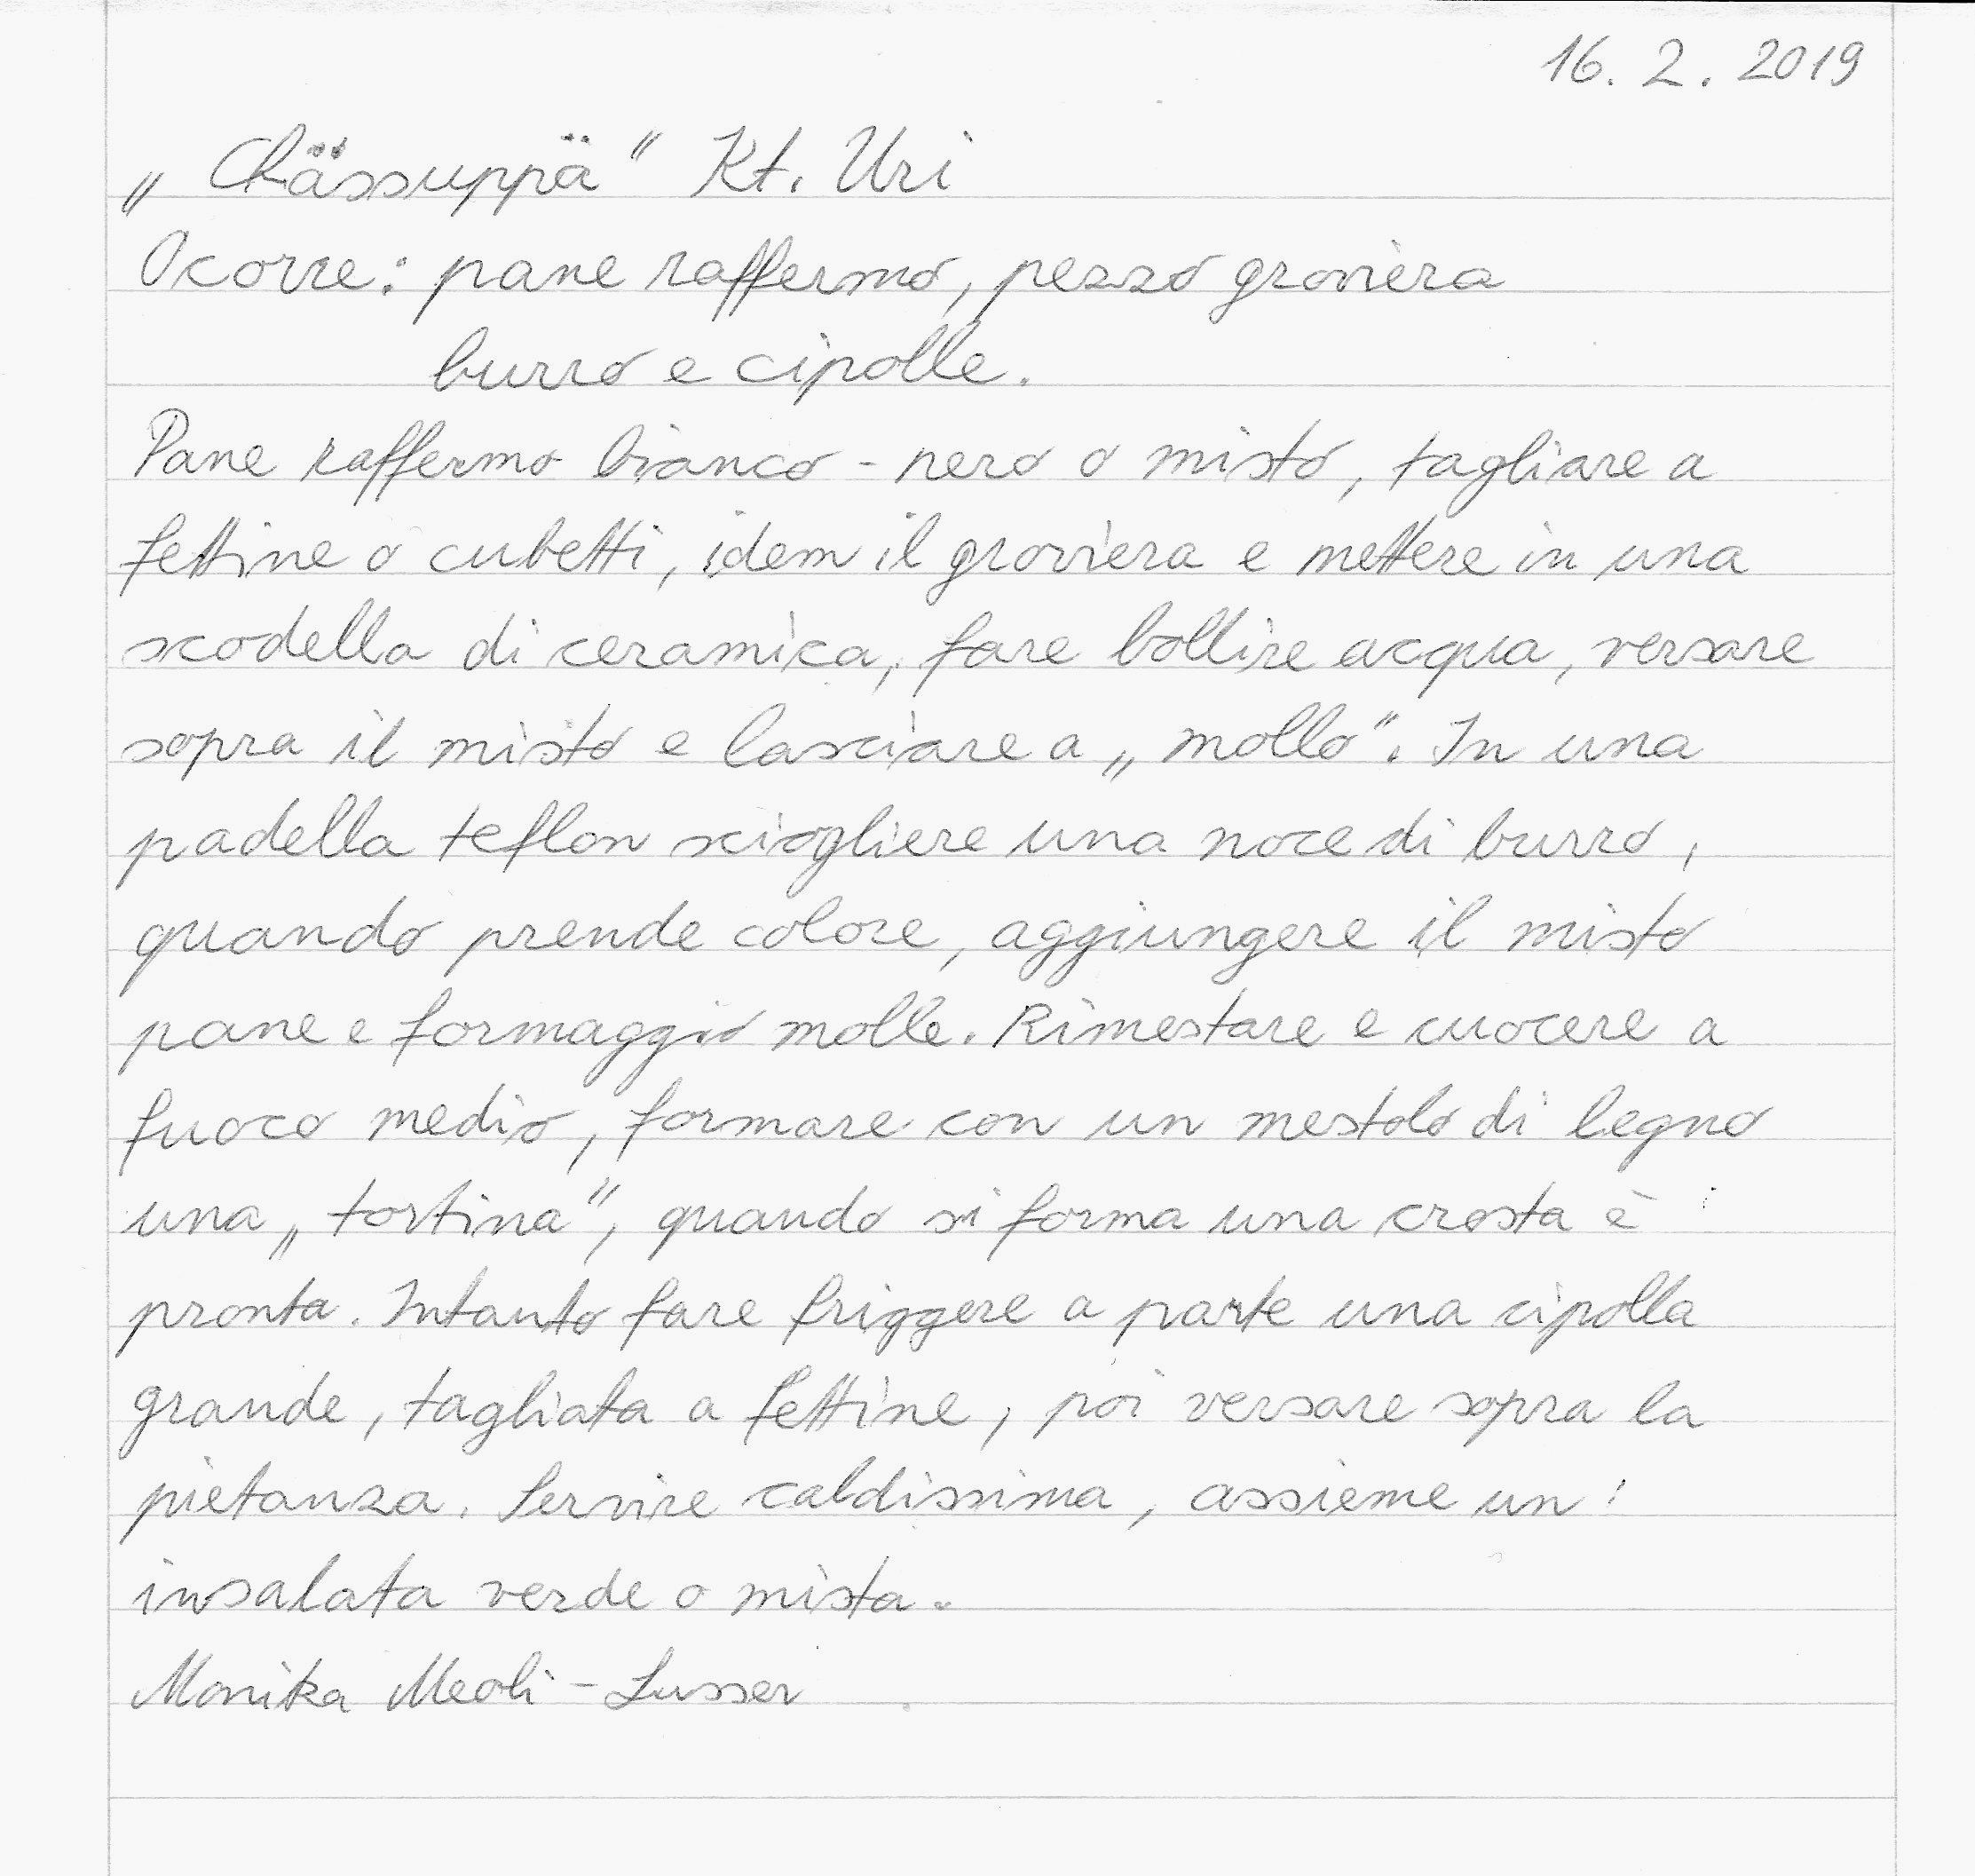 16. 2. 2019
„Chässuppä“ Kt. Uri
Ocorre: pane raffermo, pezzo groviera
burro e cipolle.
Pane raffermo bianco - nero o misto, tagliare a
fettine o cubetti, idem il groviera e mettere in una
scodella di ceramica, fare bollire acqua, versare
sopra il misto e lasciare a „mollo“. In una
padella teflon sciogliere una noce di burro,
quando prende colore, aggiungere il misto
pane e formaggio molle. Rimestare e cuocere a
fuoco medio, formare con un mestolo di legno
una „tortina“, quando si forma una crosta è
pronta. Intanto fare friggere a parte una cipolla
grande, tagliata a fettine, poi versare sopra la
pietanza. Servire caldissima, assieme un'
insalata verde o mista.
Monika Meoli - Lusser